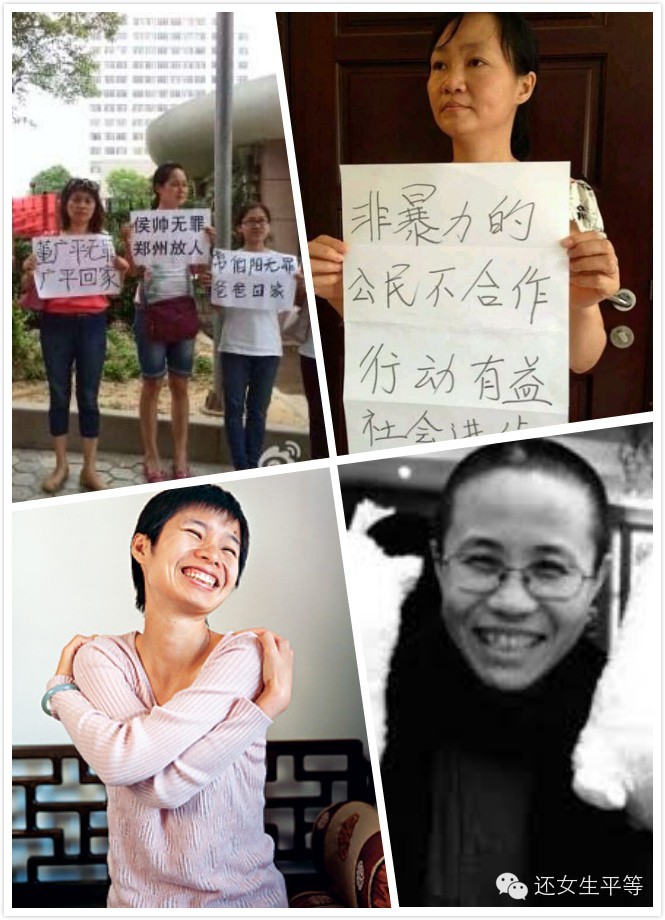 董广平无罪
广平回家
侯帅无罪
郑州放人
常伯阳无罪
爸爸回家
非暴力的
公民不合作
行动有益
社会进步
还女生平等